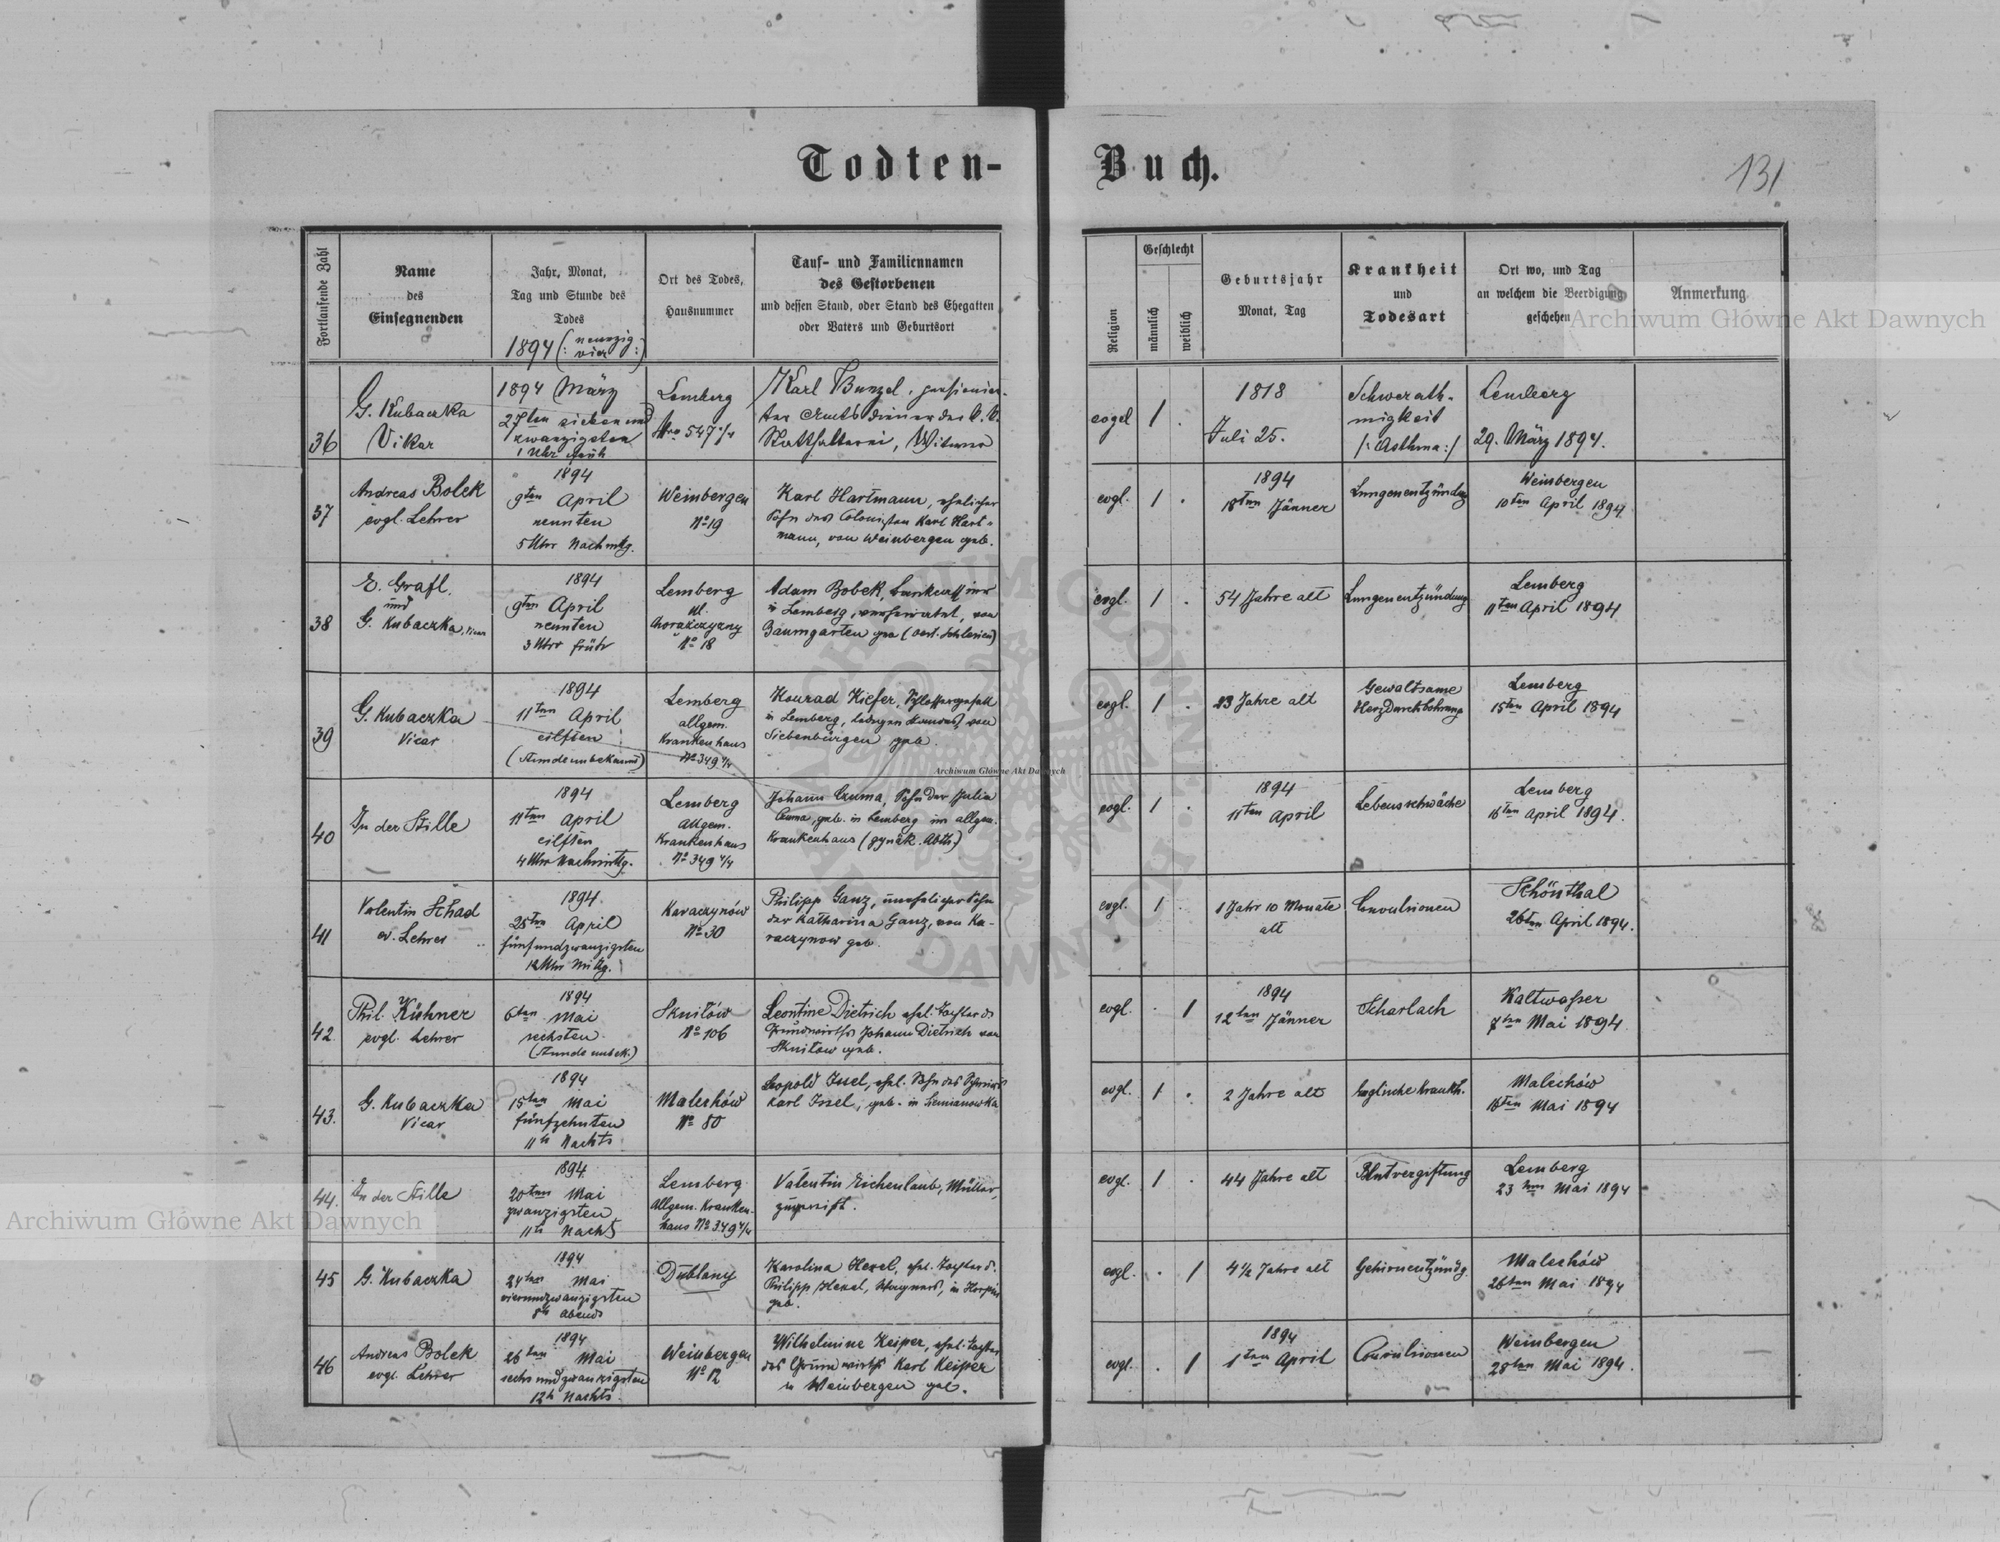 Todten-
Buch.
131
Fortlaufende Zahl
Name
des
Einsegnenden
Jahr, Monat,
Tag und Stunde des
Todes
1894 (: neunzig
vier :)
Ort des Todes,
Hausnummer
Tauf- und Familiennamen
des Gestorbenen
und dessen Stand, oder Stand des Ehegatten
oder Vaters und Geburtsort
Religion
Geschlecht
männlich
weiblich
Geburtsjahr
Monat, Tag
Krankheit
und
Todesart
Ort wo, und Tag
an welchem die Beerdigung
geschehen
Anmerkung
36
G. Kubaczka
Vikar
1894 März
27ten sieben und
zwanzigsten
1 Uhr früh
Lemberg
Nro 547 4/4
Karl Bunzel, pensionir-
ter Amtsdiener der k. k.
Statthalterei, Witwer
evgel
1
.
1818
Juli 25.
Schwerath-
migkeit
/: Asthma :/
Lemberg
29. März 1894.
37
Andreas Bolek
evgl. Lehrer
1894
9ten April
neunten
5 Uhr Nachmttg.
Weinbergen
No 19
Karl Hartmann, ehelicher
Sohn des Colonisten Karl Hart-
mann, von Weinbergen geb.
evgl.
1
.
1894
18ten Jänner
Lungenentzündung
Weinbergen
10ten April 1894
38
E. Grafl.
und
G. Kubaczka, Vicar
1894
9ten April
neunten
3 Uhr früh
Lemberg
ul.
Chorążczyzny
No 18
Adam Bobek,
in Lemberg, verheiratet, von
Baumgarten geb (oest. Schlesien)
evgl.
1
.
54 Jahre alt
Lungenentzündung
Lemberg
11ten April 1894
39
G. Kubaczka
Vicar
1894
11ten April
eilften
(Stunde unbekannt)
Lemberg
allgem.
Krankenhaus
No 349 4/4
Konrad Kiefer, Schlossergesell
in Lemberg, ledigen Standes, von
Siebenbürgen geb.
evgl.
1
.
23 Jahre alt
Gewaltsame
Herzdurchbohrung
Lemberg
15ten April 1894
40
In der Stille
1894
11ten April
eilften
4 Uhr Nachmittg.
Lemberg
Allgem.
Krankenhaus
No 349 4/4
Johann Czuma, Sohn der Julia
Czuma, geb. in Lemberg im allgem.
Krankenhaus (gynäk. Abth.)
evgl.
1
.
1894
11ten April
Lebensschwäche
Lemberg
16ten April 1894.
41
Valentin Schad
ev. Lehrer
1894
25ten April
fünfundzwanzigsten
12 Uhr Mittg.
Karaczynów
No 30
Philipp Ganz, unehelicher Sohn
der Katharina Ganz, von Ka-
raczynow geb.
evgl.
1
.
1 Jahr 10 Monate
alt
Convulsionen
Schönthal
26ten April 1894.
42
Phil. Kühner
evgl. Lehrer
1894
6ten Mai
sechsten
(Stunde unbek.)
Skniłów
No 106
Leontine Dietrich ehel. Tochter ds
Grundwirths Johann Dietrich von
Skniłow geb.
evgl.
.
1
1894
12ten Jänner
Scharlach
Kaltwasser
7ten Mai 1894
43.
G. Kubaczka
Vicar
1894
15ten Mai
fünfzehnten
11h Nachts
Malechów
No 80
Leopold Issel, ehel. Sohn des
Karl Issel, geb. in Siemianowka
evgl.
1
.
2 Jahre alt
Englische Krankh.
Malechów
16ten Mai 1894
44.
In der Stille
1894
20ten Mai
zwanzigsten
11h Nachts
Lemberg
Allgem. Kranken-
haus No 349 4/4
Valentin Eichenlaub, Müller,
zugereist.
evgl.
1
.
44 Jahre alt
Blutvergiftung
Lemberg
23ten Mai 1894
45
G. Kubaczka
1894
24ten Mai
vierundzwanzigsten
8h Abends
Dublany
Karolina Hexel, ehel. Tochter d.
Philipp Hexel, Wagners, in
geb.
evgl.
.
1
4½ Jahre alt
Gehirnentzündg.
Malechów
26ten Mai 1894
46
Andreas Bolek
evgl. Lehrer
1894
26ten Mai
sechsundzwanzigsten
12h Nachts.
Weinbergen
No 12
Wilhelmine Keiper, ehel. Tochter
des Grundwirths Karl Keiper
in Weinbergen geb.
evgl.
.
1
1894
1ten April
Convulsionen
Weinbergen
28ten Mai 1894.
Archiwum Główne Akt Dawnych
Archiwum Główne Akt Dawnych
Archiwum Główne Akt Dawnych
ARCHIWUM GŁÓWNE AKT DAWNYCH